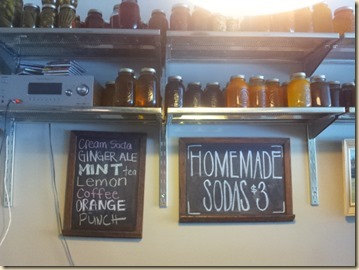 Cream Soda
GINGER ALE
MINT tea
Lemon
Coffee
ORANGE
PUNCH
HOMEMADE
SODAS $3